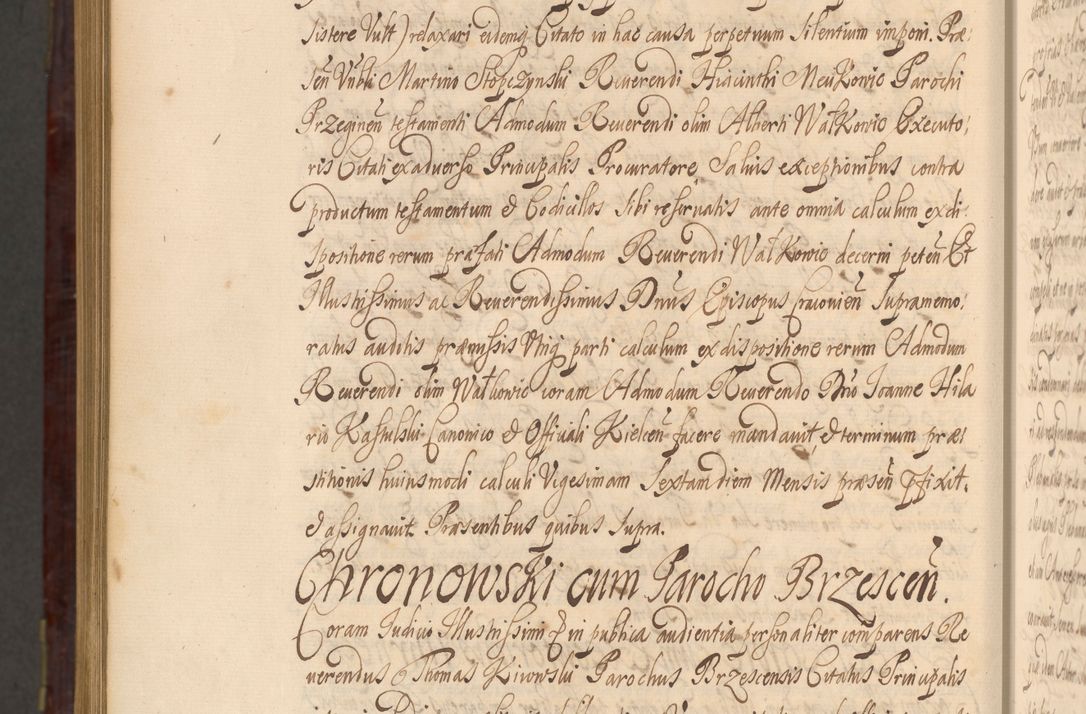 sistere Vult) relaxari eidemq́ Citato in hac causa perpetuum silentium imponi. Præ-
señ Vrbli Martino Stopczynski Reuerendi Hiacinthi Meukowic Parochi
Przegineñ testamenti Admodum Reuerendi olim Alberti Wałkowic Executo-
ris Citati exaduerso Principalis Procuratore, Saluis exceptionibus contra
productum testamentum & Codicillos sibi reseruatis ante omnia calculum ex di-
spositione rerum præfati Admodum Reuerendi Wałkowic decerni peteñ Et
Illustrissimus ac Reuerendissimus Dnus Episcopus Cracouieñ supramemo-
ratus auditis præmissis Vtriq́ parti calculum ex dispositione rerum Admodum
Reuerendi olim Wałkowic coram Admodum Reuerendo Dno Ioanne Hila
rio Kastulski Canonico & Officiali Kielceñ facere mandauit, & terminum præ-
stitionis huiusmodi calculi Vigesimam Sextam diem Mensis præseñ p̱fixit.
& assignauit Præsentibus quibus supra.
Chronowski cum Parocho Brzesceñ.
Coram Iudicio Illustrissimi & in publica audientia personaliter comparens Re
uerendus Thomas Kirowski Parochus Brzescensis Citatus Principalis